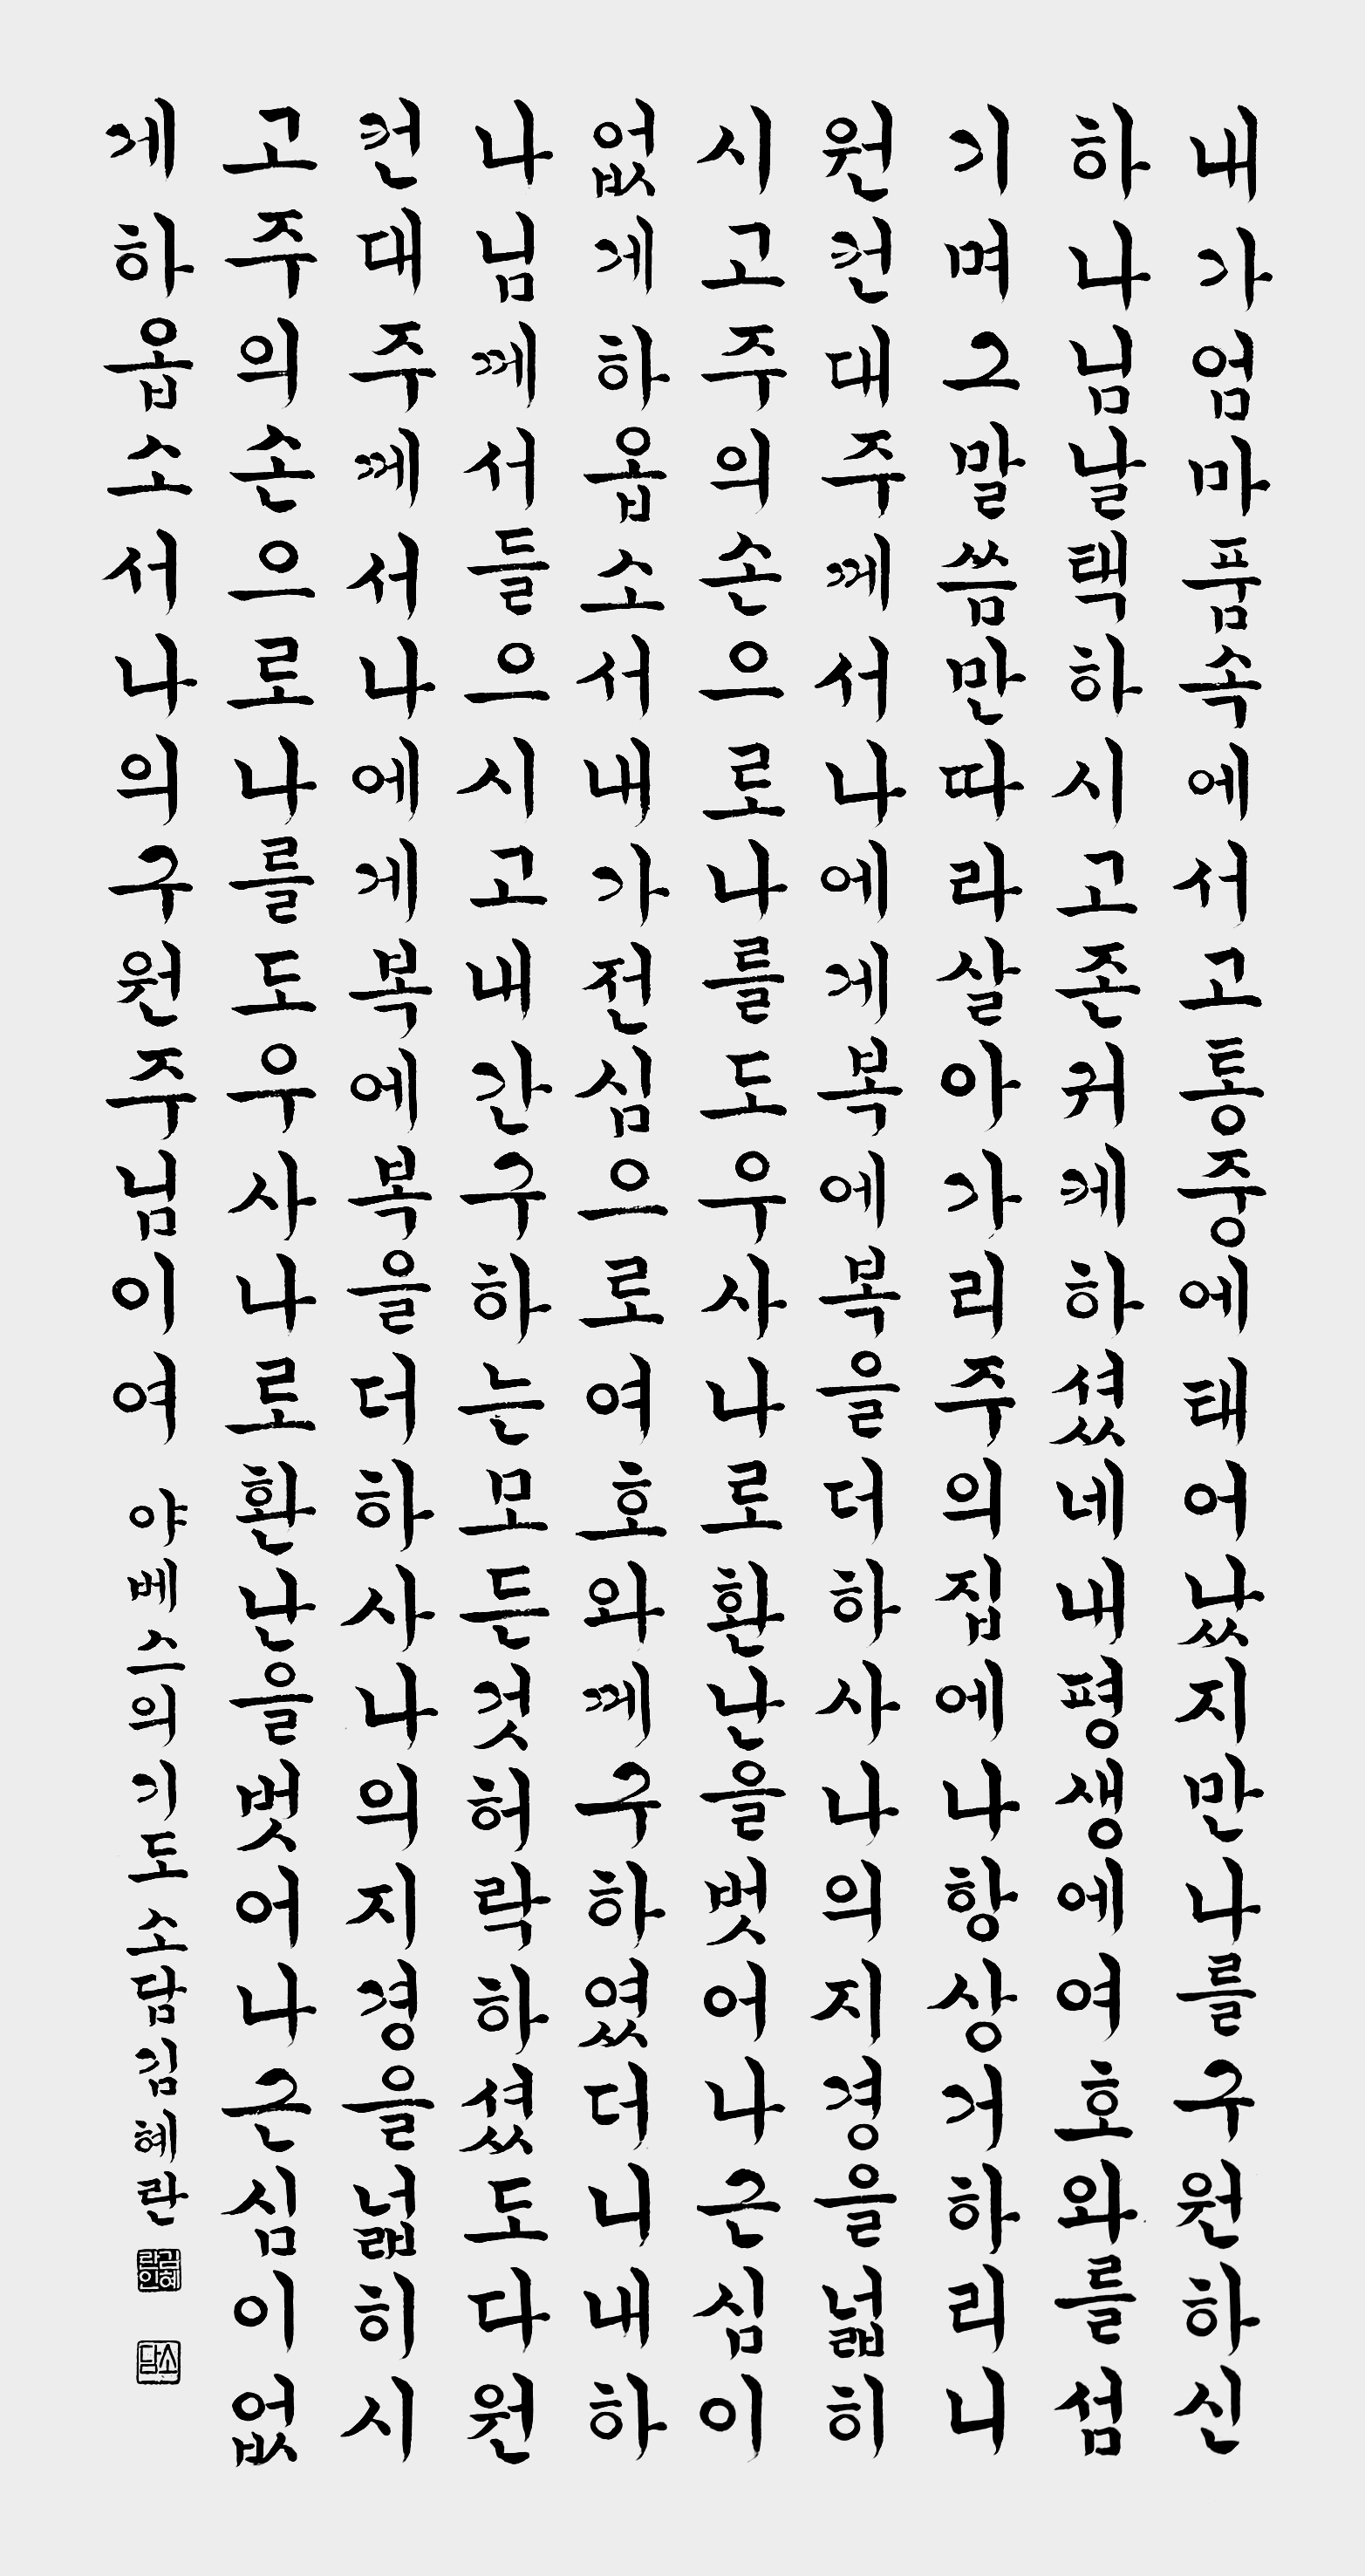 내가엄마품속에서고통중에태어났지만나를구원하신
하나님날택하시고존귀케하셨네내평생에여호와를섬
기며그말씀만따라살아가리주의집에나항상거하리니
원컨대주께서나에게복에복을더하사나의지경을넓히
시고주의손으로나를도우사나로환난을벗어나근심이
없게하옵소서내가전심으로여호와께구하였더니내하
나님께서들으시고내간구하는모든것허락하셨도다원
컨대주께서나에게복에복을더하사나의지경을넓히시
고주의손으로나를도우사나로환난을벗어나근심이없
게하옵소서나의구원주님이여 야베스의기도 소담김혜란
김혜란인
소담